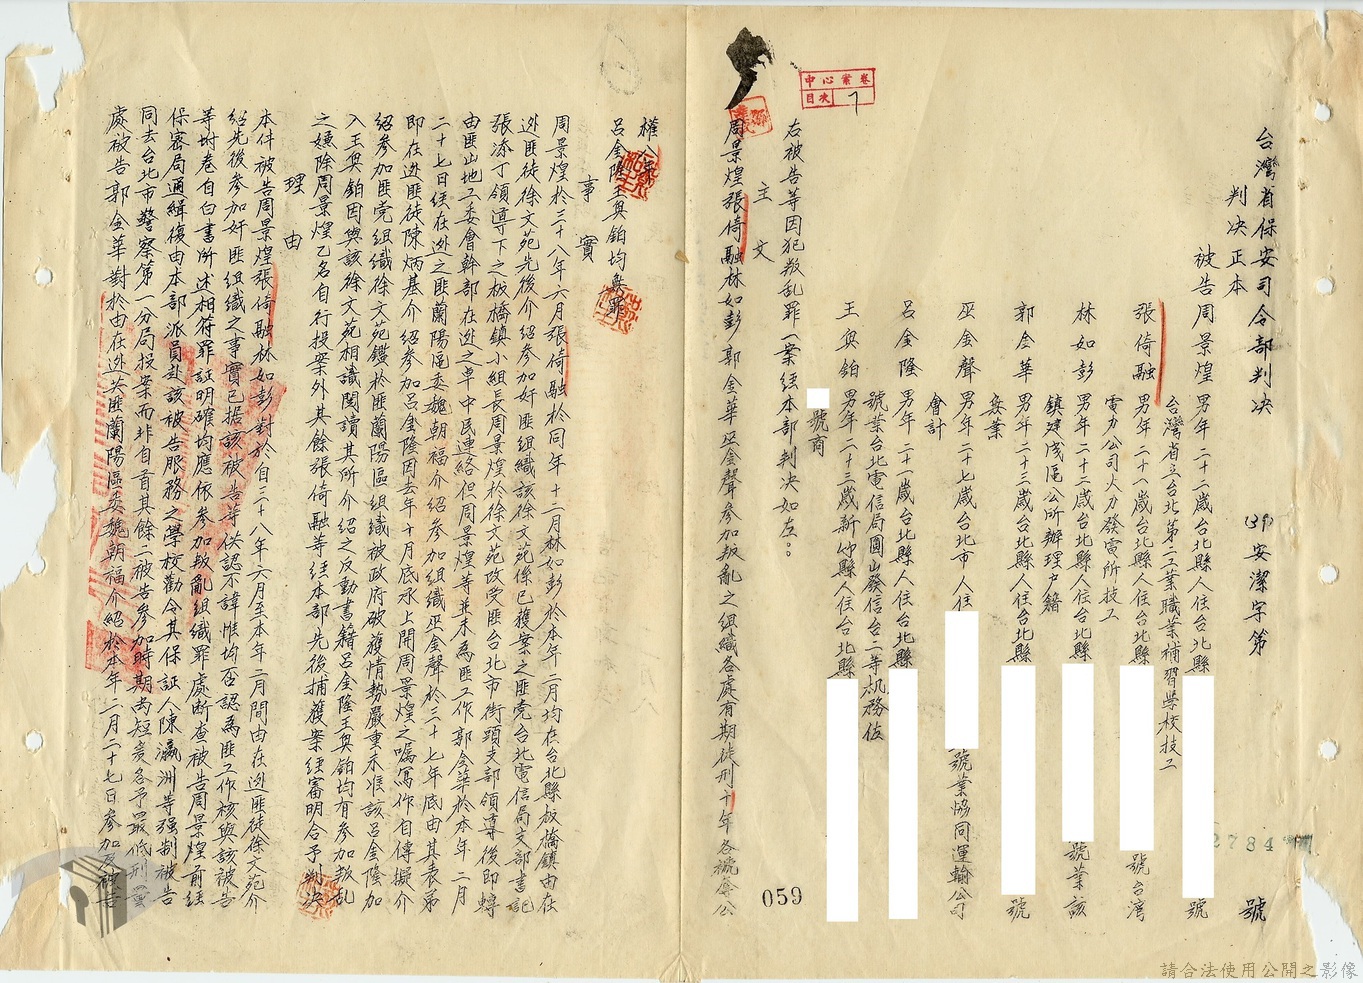 中心業卷
目次 7
台灣省保安司令部判決
(39)安潔字第 2784 號
判決正本
被告周景煌 男年二十二歲台北縣人住台北縣 號
台灣省立台北第二工業職業補習學校技工
張倚融 男年二十一歲台北縣人住台北縣 號台灣
電力公司火力發電所技工
林如彭 男年二十二歲台北縣人住台北縣 號業該
鎮建成區公所辦理户籍
郭金華 男年二十三歲台北縣人住台北縣 號
無業
巫金聲 男年二十七歲台北市人住 號業協同運輸公司
會計
呂金隆 男年二十一歲台北縣人住台北縣
號業台北電信局圓山發信台二等机務佐
王奐鉑 男年二十三歲新竹縣人住台北縣
號商
右被告等因犯叛乱罪一案經本部判决如左：
主文
周景煌張倚融林如彭郭金華巫金聲參加叛亂之組織各處有期徒刑十年各褫奪公
059
權八年
呂金隆王奐鉑均無罪
事實
周景煌於三十八年六月張倚融於同年十二月林如彭於本年二月均在台北縣板橋鎮由在
逃匪徒徐文苑先後介紹參加奸匪組織該徐文苑係已獲案之匪党台北電信局支部書記
張添丁領導下之板橋鎮小組長周景煌於徐文苑改受匪台北市街頭支部領導後即轉
由匪山地工委會幹部在逃之卓中民連絡但周景煌等並未為匪工作郭金華於本年二月
二十七日經在逃之匪蘭陽區委魏朝福介紹參加組織巫金聲於三十七年底由其表弟
即在逃匪徒陳炳基介紹參加呂金隆因去年十月底承上開周景煌之囑寫作自傳擬介
紹參加匪党組織徐文苑鑑於匪蘭陽區組織被政府破獲情勢嚴重未准該呂金隆加
入王奐鉑因與該徐文苑相識閱讀其所介紹之反動書籍呂金隆王奐鉑均有參加叛乱
之嫌除周景煌乙名自行投案外其餘張倚融等經本部先後捕獲案經審明合予判决
理由
本件被告周景煌張倚融林如彭對於自三十八年六月至本年二月間由在逃匪徒徐文苑介
紹先後參加奸匪組織之事實已据該被告等供認不諱惟均否認為匪工作核與該被告
等附卷自白書所述相符罪証明確均應依參加叛亂組織罪處断查被告周景煌前經
保密局通緝復由本部派員赴該被告服務之學校勸令其保証人陳瀛洲等强制被告
同去台北市警察第一分局投案而非自首其餘二被告參加時期尚短爰各予最低刑
處被告郭金華對於由在逃共匪蘭陽區委魏朝福介紹於本年二月二十七日參加及被告
請合法使用公開之影像